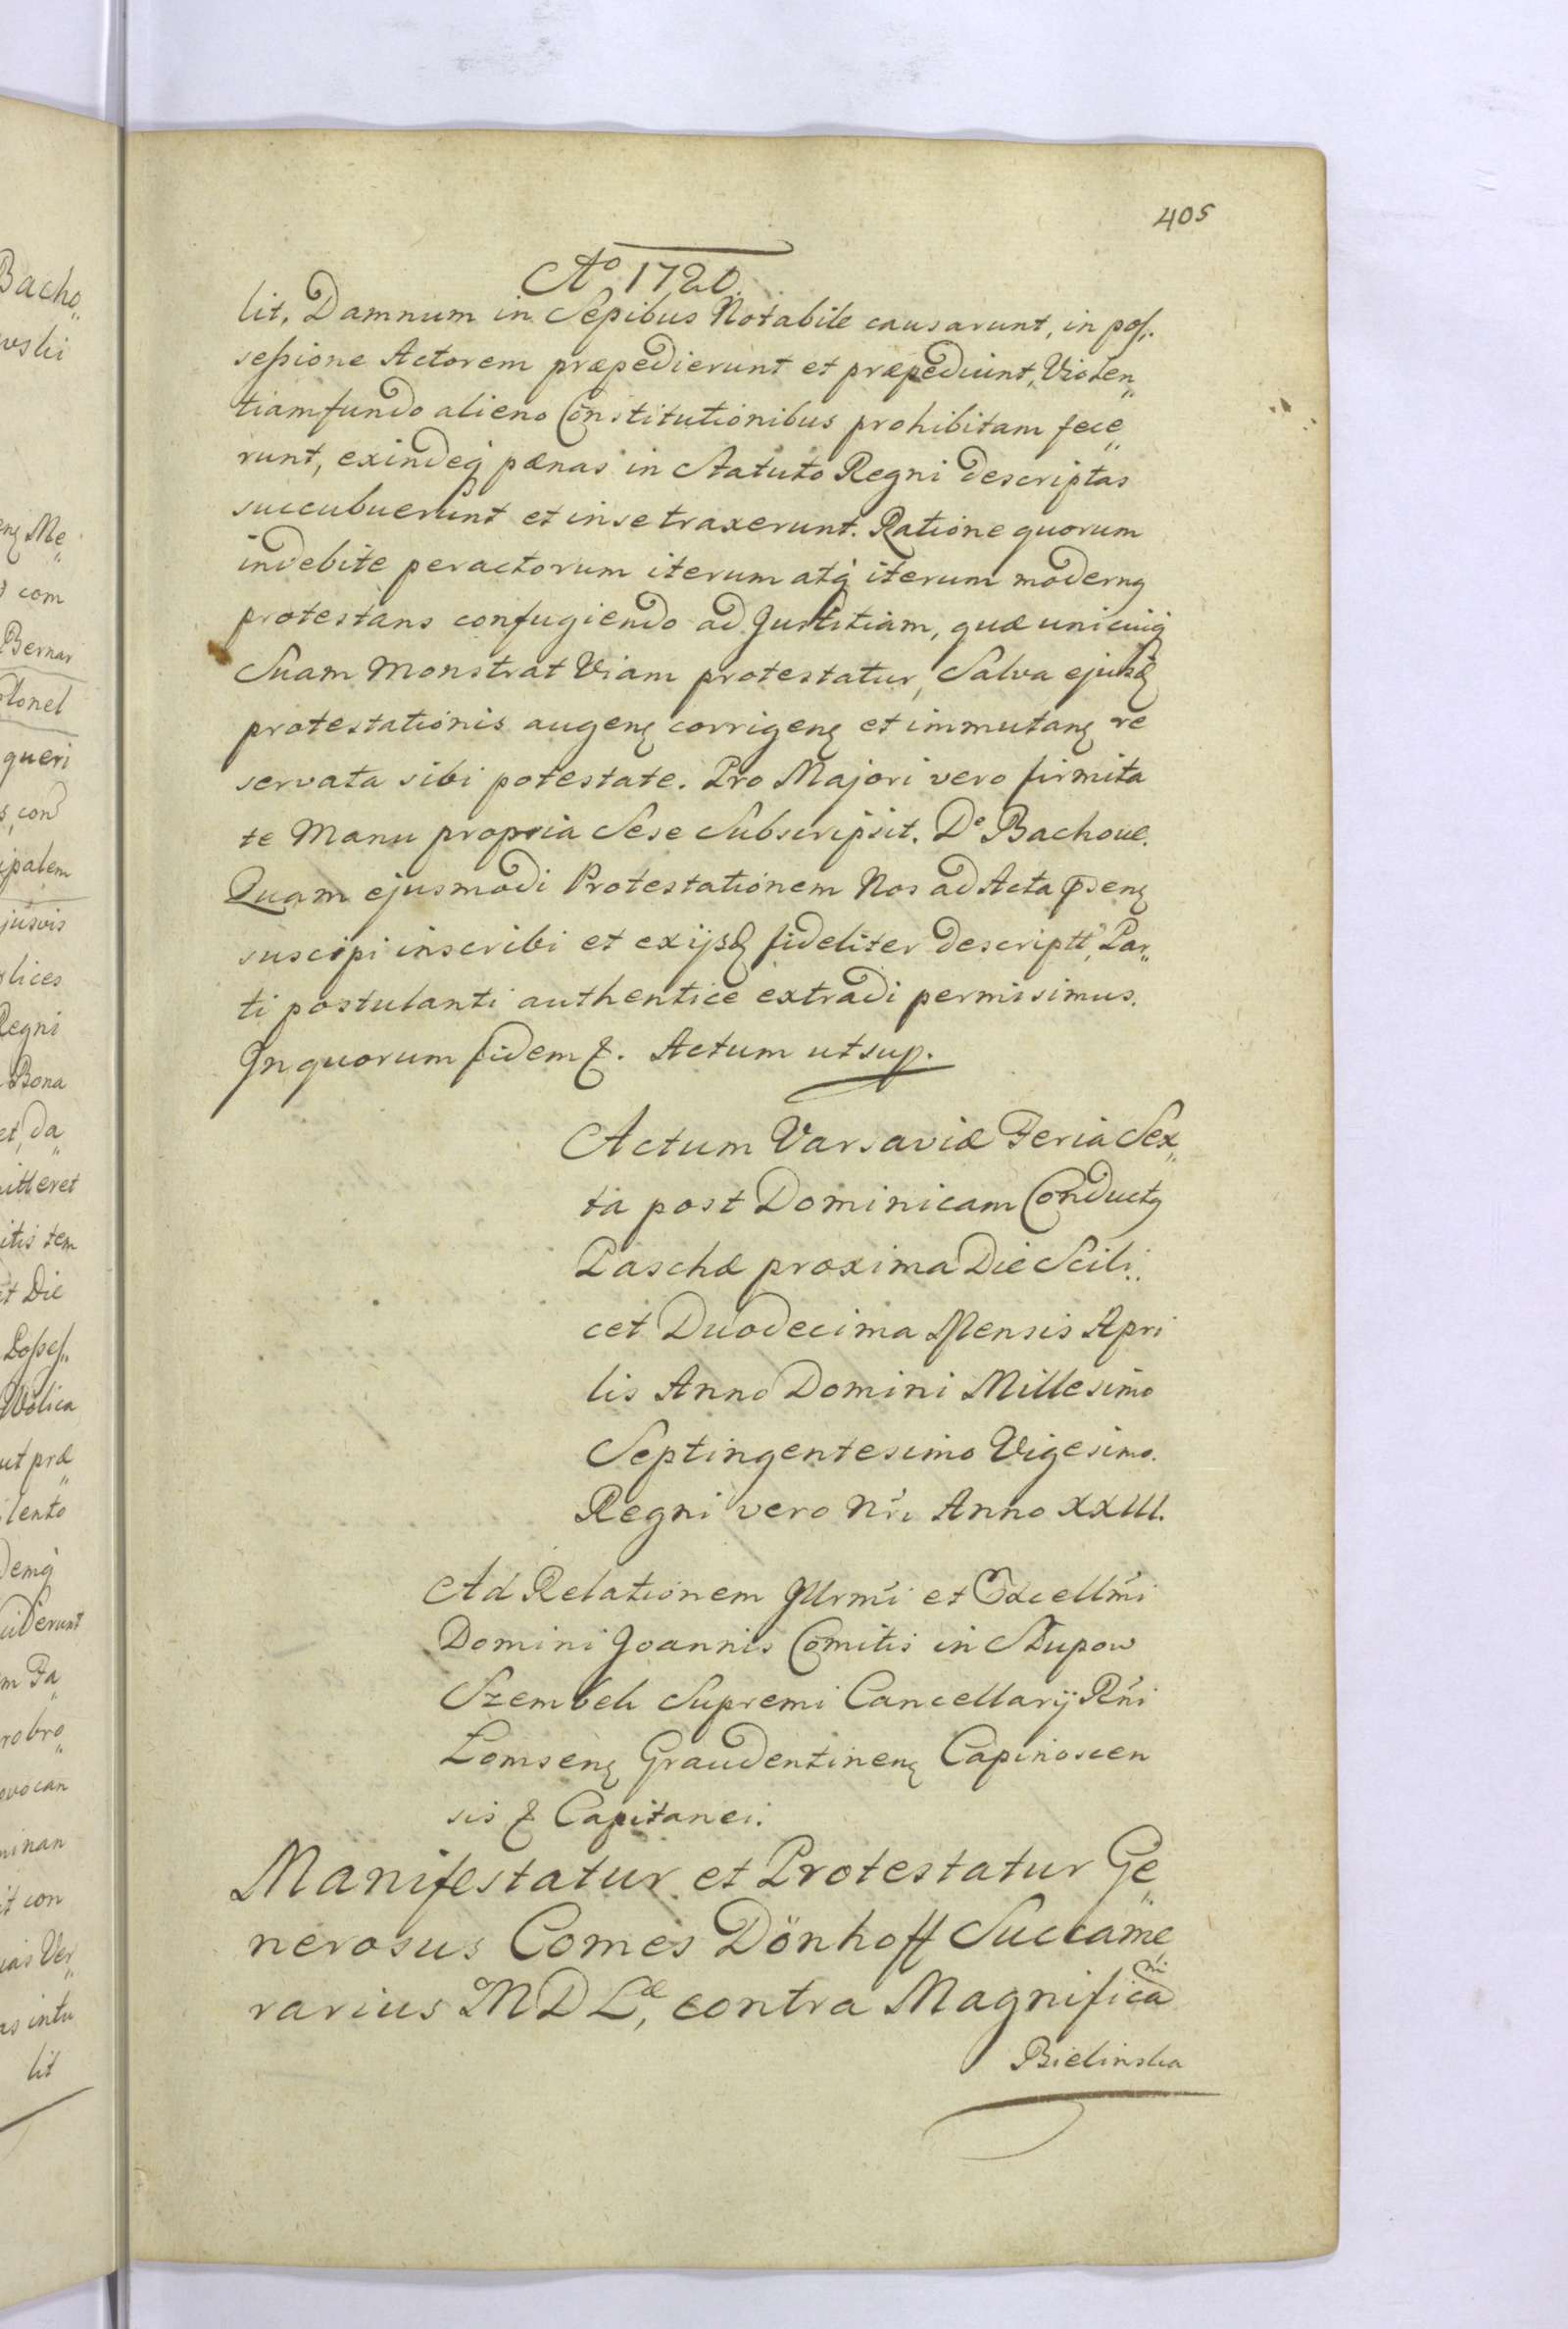 405
Aº 1720.
lit, Damnum in Sepibus Notabile causarunt, in pos„
sessione Actorem præpedierunt et præpediunt, Violen„
tiam fundo alieno Constitutionibus prohibitam fece„
runt, exindeq pænas in Statuto Regni descriptas
succubuerunt et in se traxerunt. Ratione quorum
indebite peractorum iterum atq iterum modernꝯ
protestans confugiendo ad Justitiam, quæ unicuiq
Suam Monstrat Viam protestatur, Salva ejusd
protestationis augenꝫ corrigenꝫ et immutanꝫ re
servata sibi potestate. Pro Majori vero firmita
te Manu propria Sese Subscripsit. De Bachoue.
Quam ejusmodi Protestationem Nos ad Acta p̄senꝫ
suscipi inscribi et ex ijsd fideliter descriptt, Par„
ti postulanti authentice extradi permisimus.
In quorum fidem ꝛ. Actum ut sup.
Actum Varsaviæ Feria Sex„
ta post Dominicam Conductꝯ
Paschæ proxima Die Scili„
cet Duodecima Mensis Apri
lis Anno Domini Millesimo
Septingentesimo Vigesimo.
Regni vero Nri Anno XXIII.
Ad Relationem Illrmi et Excellmi
Domini Joannis Comitis in Słupow
Szembek Supremi Cancellarij Rni
Lomsenꝫ Graudentinenꝫ Capinoscen
sis ꝛ Capitanei.
Manifestatur et Protestatur Ge„
nerosus Comes Dönhoff Succame„
rarius M D Læ, contra Magnificam
Bielinska
Bacho„
wski
enꝫ Me„
com
Bernar
lonel
queri
s, con
ipalem
jusvis
lices
Regni
Bona
et, da„
itteret
itis tem
et Die
Posses„
Wolica
ut præ„
lento
demq
iderunt
m Fa„
robro„
ovocan
minan
it con
ias Ver„
as intu
lit